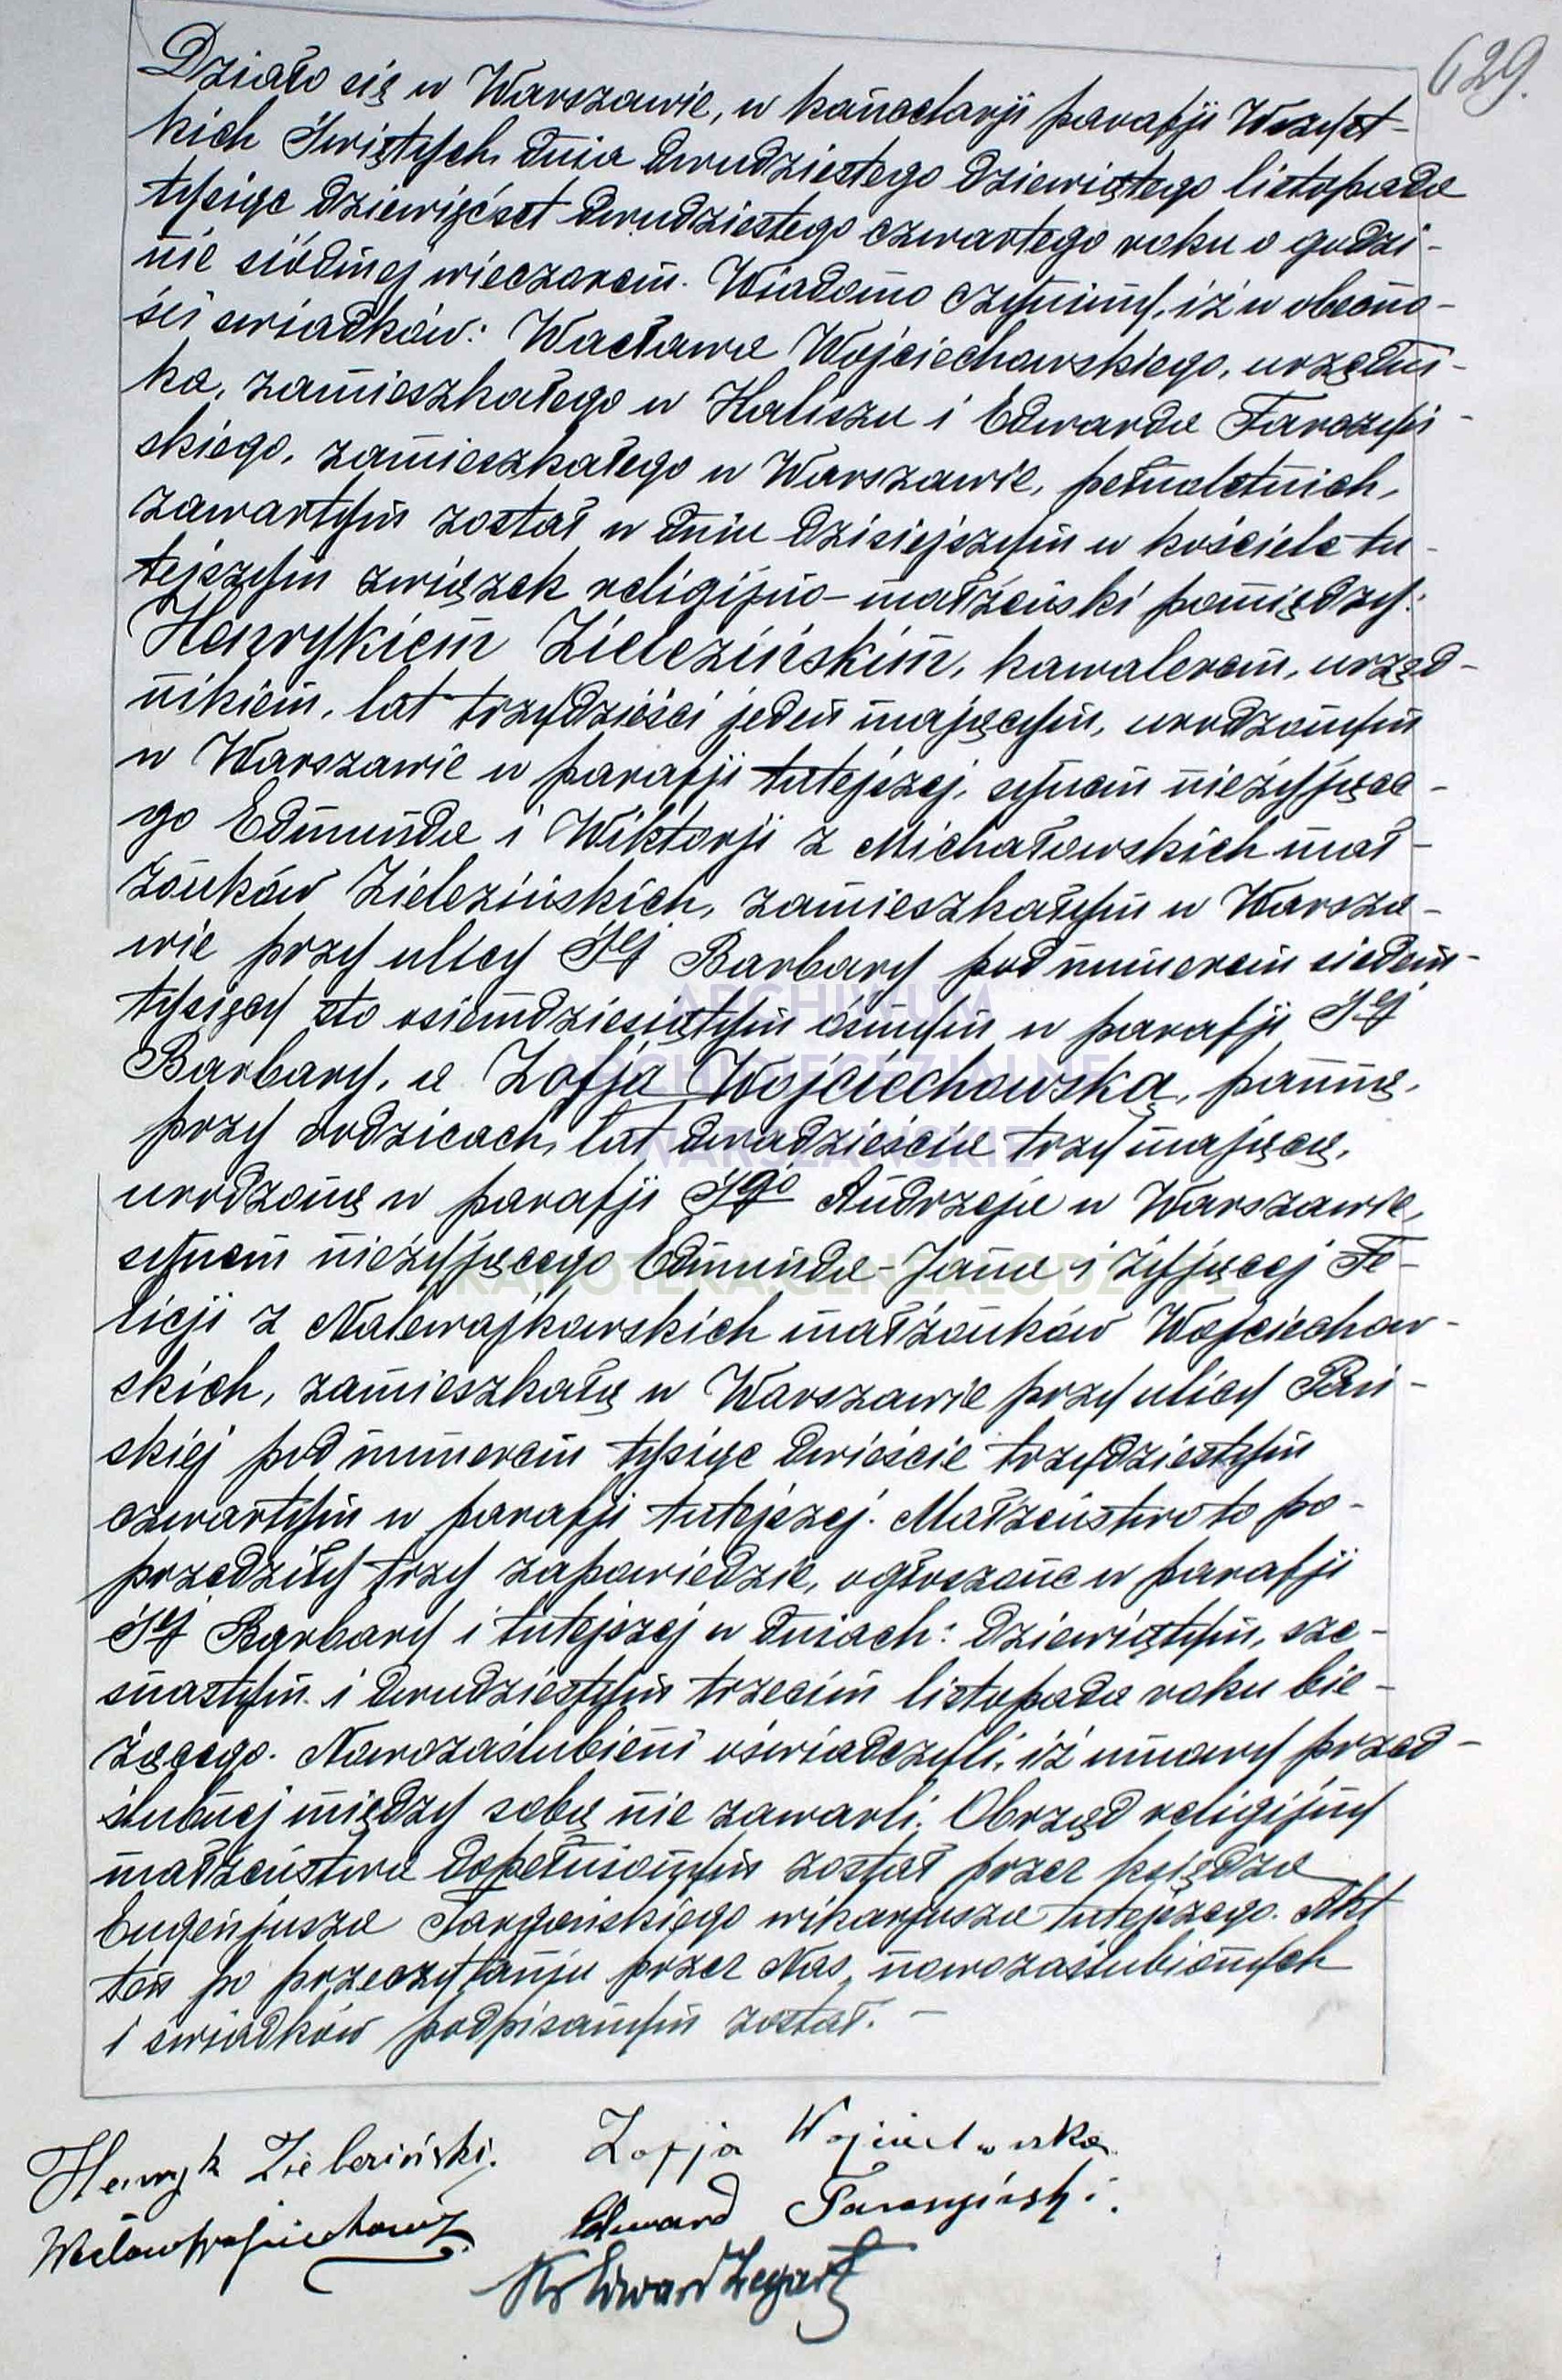 629.
Działo się w Warszawie, w kancelarji parafji Wszyst-
kich Świętych dnia dwudziestego dziewiątego listopada
tysiąc dziewięćset dwudziestego czwartego roku o godzi-
nie siódmej wieczorem. Wiadomo czynimy, iż w obecno-
ści świadków: Wacława Wojciechowskiego, urzędni-
ka, zamieszkałego w Kaliszu i Edwarda Taroszyń-
skiego, zamieszkałego w Warszawie, pełnoletnich,
zawartym został w dniu dzisiejszym w kościele tu-
tejszym związek religijno-małżeński pomiędzy:
Henrykiem Zielezińskim, kawalerem, urzęd-
nikiem, lat trzydzieści jeden mającym, urodzonym
w Warszawie w parafji tutejszej, synem nieżyjące-
go Edmunda i Wiktorji z Michałowskich mał-
żonków Zielezińskich, zamieszkałym w Warsza-
wie przy ulicy Śej Barbary pod numerem siedem-
tysięcy sto osiemdziesiątym ósmym w parafji Śej
Barbary, a Zofją Wojciechowską, panną,
przy rodzicach, lat dwadzieścia trzy mającą,
urodzoną w parafji Śgo Andrzeja w Warszawie,
synem nieżyjącego Edmunda-Jana i żyjącej Fe-
licji z Nalewajkowskich małżonków Wojciechow-
skich, zamieszkałą w Warszawie przy ulicy Pań-
skiej pod numerem tysiąc dwieście trzydziestym
czwartym w parafji tutejszej. Małżeństwo to po-
przedziły trzy zapowiedzie, ogłoszone w parafji
Śej Barbary i tutejszej w dniach: dziewiątym, sze-
snastym i dwudziestym trzecim listopada roku bie-
żącego. Nowozaślubieni oświadczyli, iż umowy przed-
ślubnej między sobą nie zawarli. Obrząd religijny
małżeństwa dopełnionym został przez księdza
Eugenjusza Targońskiego wikarjusza tutejszego. Akt
ten po przeczytaniu przez Nas, nowozaślubionych
i świadków podpisanym został. —
Henryk Zieleziński. Zofja Wojciechowska
Wacław Wojciechowski Edward Taroszyński.
Ks Edward Żegart
ARCHIWUM
ARCHIDIECEZJALNE
WARSZAWSKIE
KARTOTEKA.GENEALODZY.PL